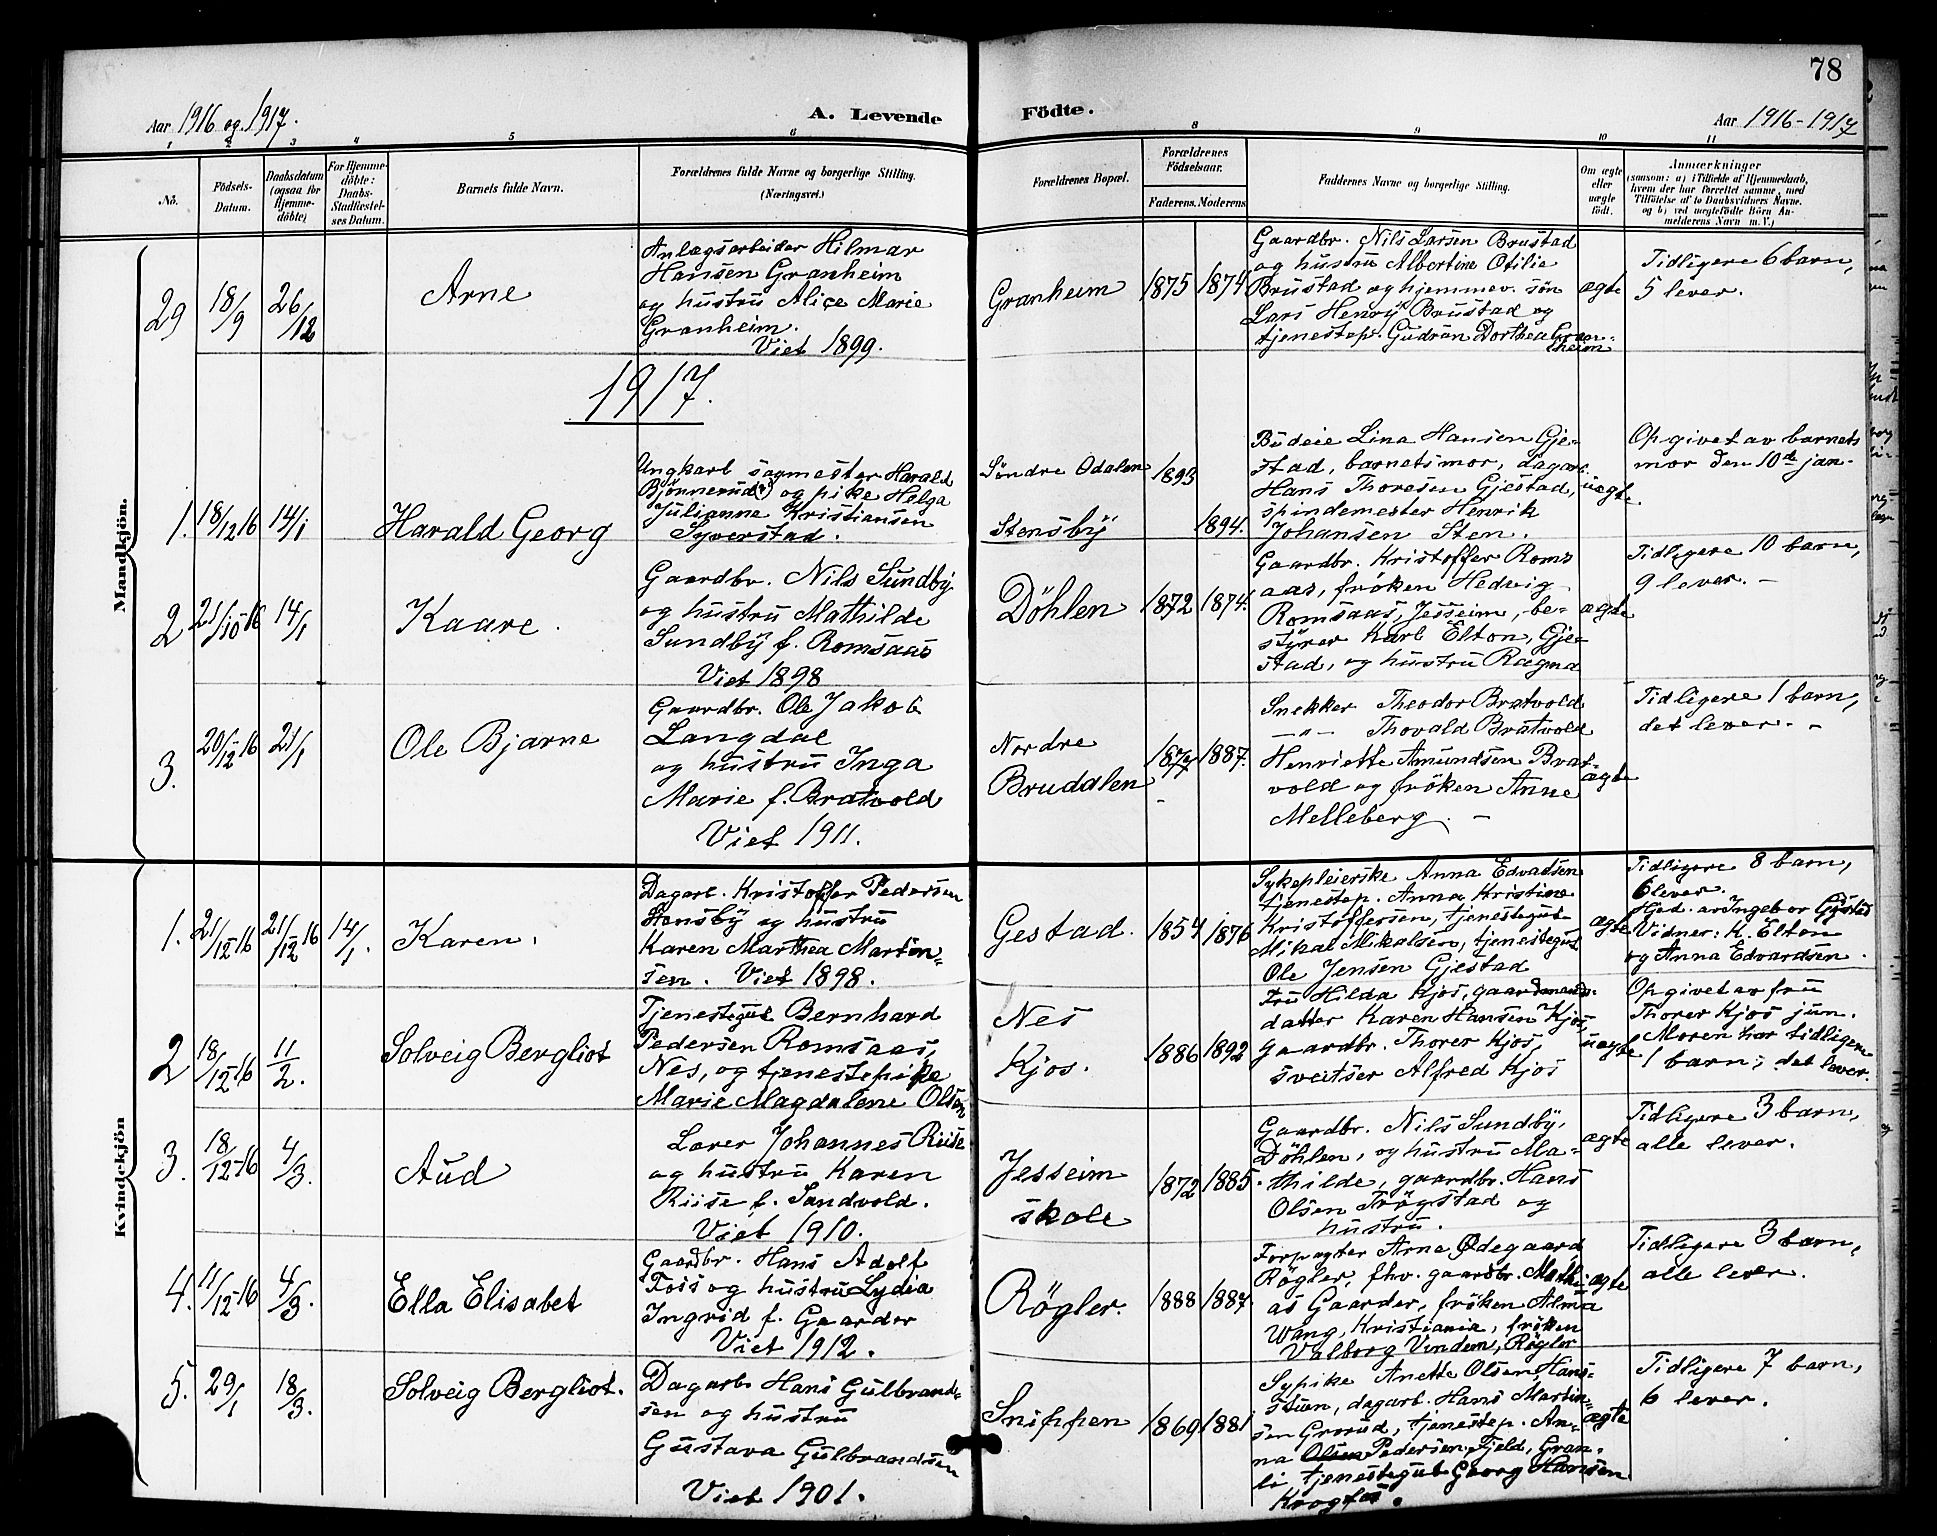 78
Aar 1916 og 1917.
A. Levende
Födte.
Aar 1916-1917
1 2 3 4 5 6
8 9 10 11
No.
Födsels-
Datum.
Daabsdatum
(ogsaa for
Hjemme-
döbte)
For Hjemme-
döbte:
Daabs-
Stadfæstel-
ses Datum.
Barnets fulde Navn.
Forældrenes fulde Navne og borgerlige Stilling.
(Næringsvei.)
Forældrenes Bopæl.
Forældrenes
Födselsaar.
Faderens. Moderens.
Faddernes Navne og borgerlige Stilling.
Om ægte
eller
uægte
født.
Anmærkninger
(saasom: a) i Tilfælde af Hjemmedaab,
hvem der har forrettet samme, med
Tilföielse af to Daabsvidners Navne.
og b) ved uægtefödte Börn An-
melderens Navn m. V.)
Mandkjön.
29 18/9 26/12
Arne
Anlægsarbeider Hilmar
Hansen Granheim
og hustru Alice Marie
Granheim.
Viet 1899.
Granheim 1875 1874
Gaardbr. Nils Larsen Brustad
og hustru Albertine Otilie
Brustad og hjemmev. søn
Lars Henry Brustad og
tjenestep. Gudrun Dorthea Gran-
heim
ægte
Tidligere 6 barn,
5 lever.
1917.
1. 18/12 16 14/1
Harald Georg
Ungkarl sagmester Harald
Bjönnerud(?) og pike Helga
Julianne Kristiansen
Syverstad.
Söndre Odalen 1893
Stensby 1894.
Budeie Lina Hansen Gje-
stad, barnetsmor, dagarb.
Hans Thoresen Gjestad,
spindemester Henrik
Johansen Sten.
uægte
Opgivet av barnets
mor den 10de jan-
2 21/10 16 14/1
Kaare.
Gaardbr. Nils Sundby
og hustru Mathilde
Sundby f. Romsaas
Viet 1898
Döhlen 1872 1874.
Gaardbr. Kristoffer Roms
aas, fröken Hedvig
Romsaas, Jesseim, be-
styrer Karl Elton, Gje-
stad, og hustru Ragna
ægte
Tidligere 10 barn,
9 lever. -
3. 20/12 16 21/1
Ole Bjarne
Gaardbr. Ole Jakob
Langdal
og hustru Inga
Marie f. Bratvold
Viet 1911.
Nordre
Bruddalen 1887.
Snekker Theodor Bratvold
-"- Thovald Bratvold
Henriette Amundsen Brat-
vold og fröken Anne
Melleberg. -
ægte
Tidligere 1 barn,
det lever. -
Kvindekjön
1. 21/12 16 21/12 16 14/1.
Karen.
Dagarb. Kristoffer Pedersen
Stensby og hustru
Karen Marthea Martin-
sen. Viet 1898.
Gestad. 1854 1876
Sykepleierske Anna Edvadsen
tjenestep. Anna Kristine
Kristoffersen, tjenestegut
Mikal Mikalsen, tjenestegut
Ole Jensen Gjestad
ægte
Tidligere 8 barn,
6 lever.
Hjed. av Ingebor Gjestad
Vidner: K. Elton
og Anna Edvardsen.
2 18/12 16 11/2.
Solveig Bergliot
Tjenestegut Bernhard
Pedersen Romsaas,
Nes, og tjenestepike
Marie Magdalene Olsen
Nes
Kjos. 1886 1892
Fru Hilda Kjos, gaardmands-
datter Karen Hansen Kjos,
Gaardbr. Thorer Kjos,
sveitser Alfred Kjos
uægte
Opgivet av fru
Thorer Kjos jun.
Moren har tidligere
1 barn; det lever.
3. 18/12 16 4/3.
Aud
Lærer Johannes Riise
og hustru Karen
Riise f. Sandvold.
Viet 1910.
Jesseim
skole 1872 1885.
Gaardbr. Nils Sundby,
Döhlen, og hustru Ma-
thilde, gaardbr. Hans
Olsen Trögstad og
hustru.
ægte
Tidligere 3 barn,
alle lever.
4. 11/12 16 4/3.
Ella Elisabet
Gaardbr. Hans Adolf
Foss og hustru Lydia
Ingrid f. Gaarder
Viet 1912.
Rögler. 1888 1887.
Forpagter Arne Ødegaard
Rögler, fhv. gaardbr. Mathi-
as Gaarder, fröken Alma
Wang, Kristiania, fröken
Valborg Vindem, Rögler
ægte
Tidligere 3 barn,
alle lever.
5. 29/1 18/3.
Solveig Bergliot.
Dagarb. Hans Gulbrand-
sen og hustru
Gustava Gulbrandsen
Viet 1901.
Snippen 1869 1881
Sypike Anette Olsen, Hans-
stuen, dagarb. Hans Martin-
sen Grorud, tjenestep. An-
na Olsen Pedersen Fjeld, Gran-
li, tjenestegut Georg Hansen
Krogfos.
ægte
Tidligere 7 barn,
6 lever.